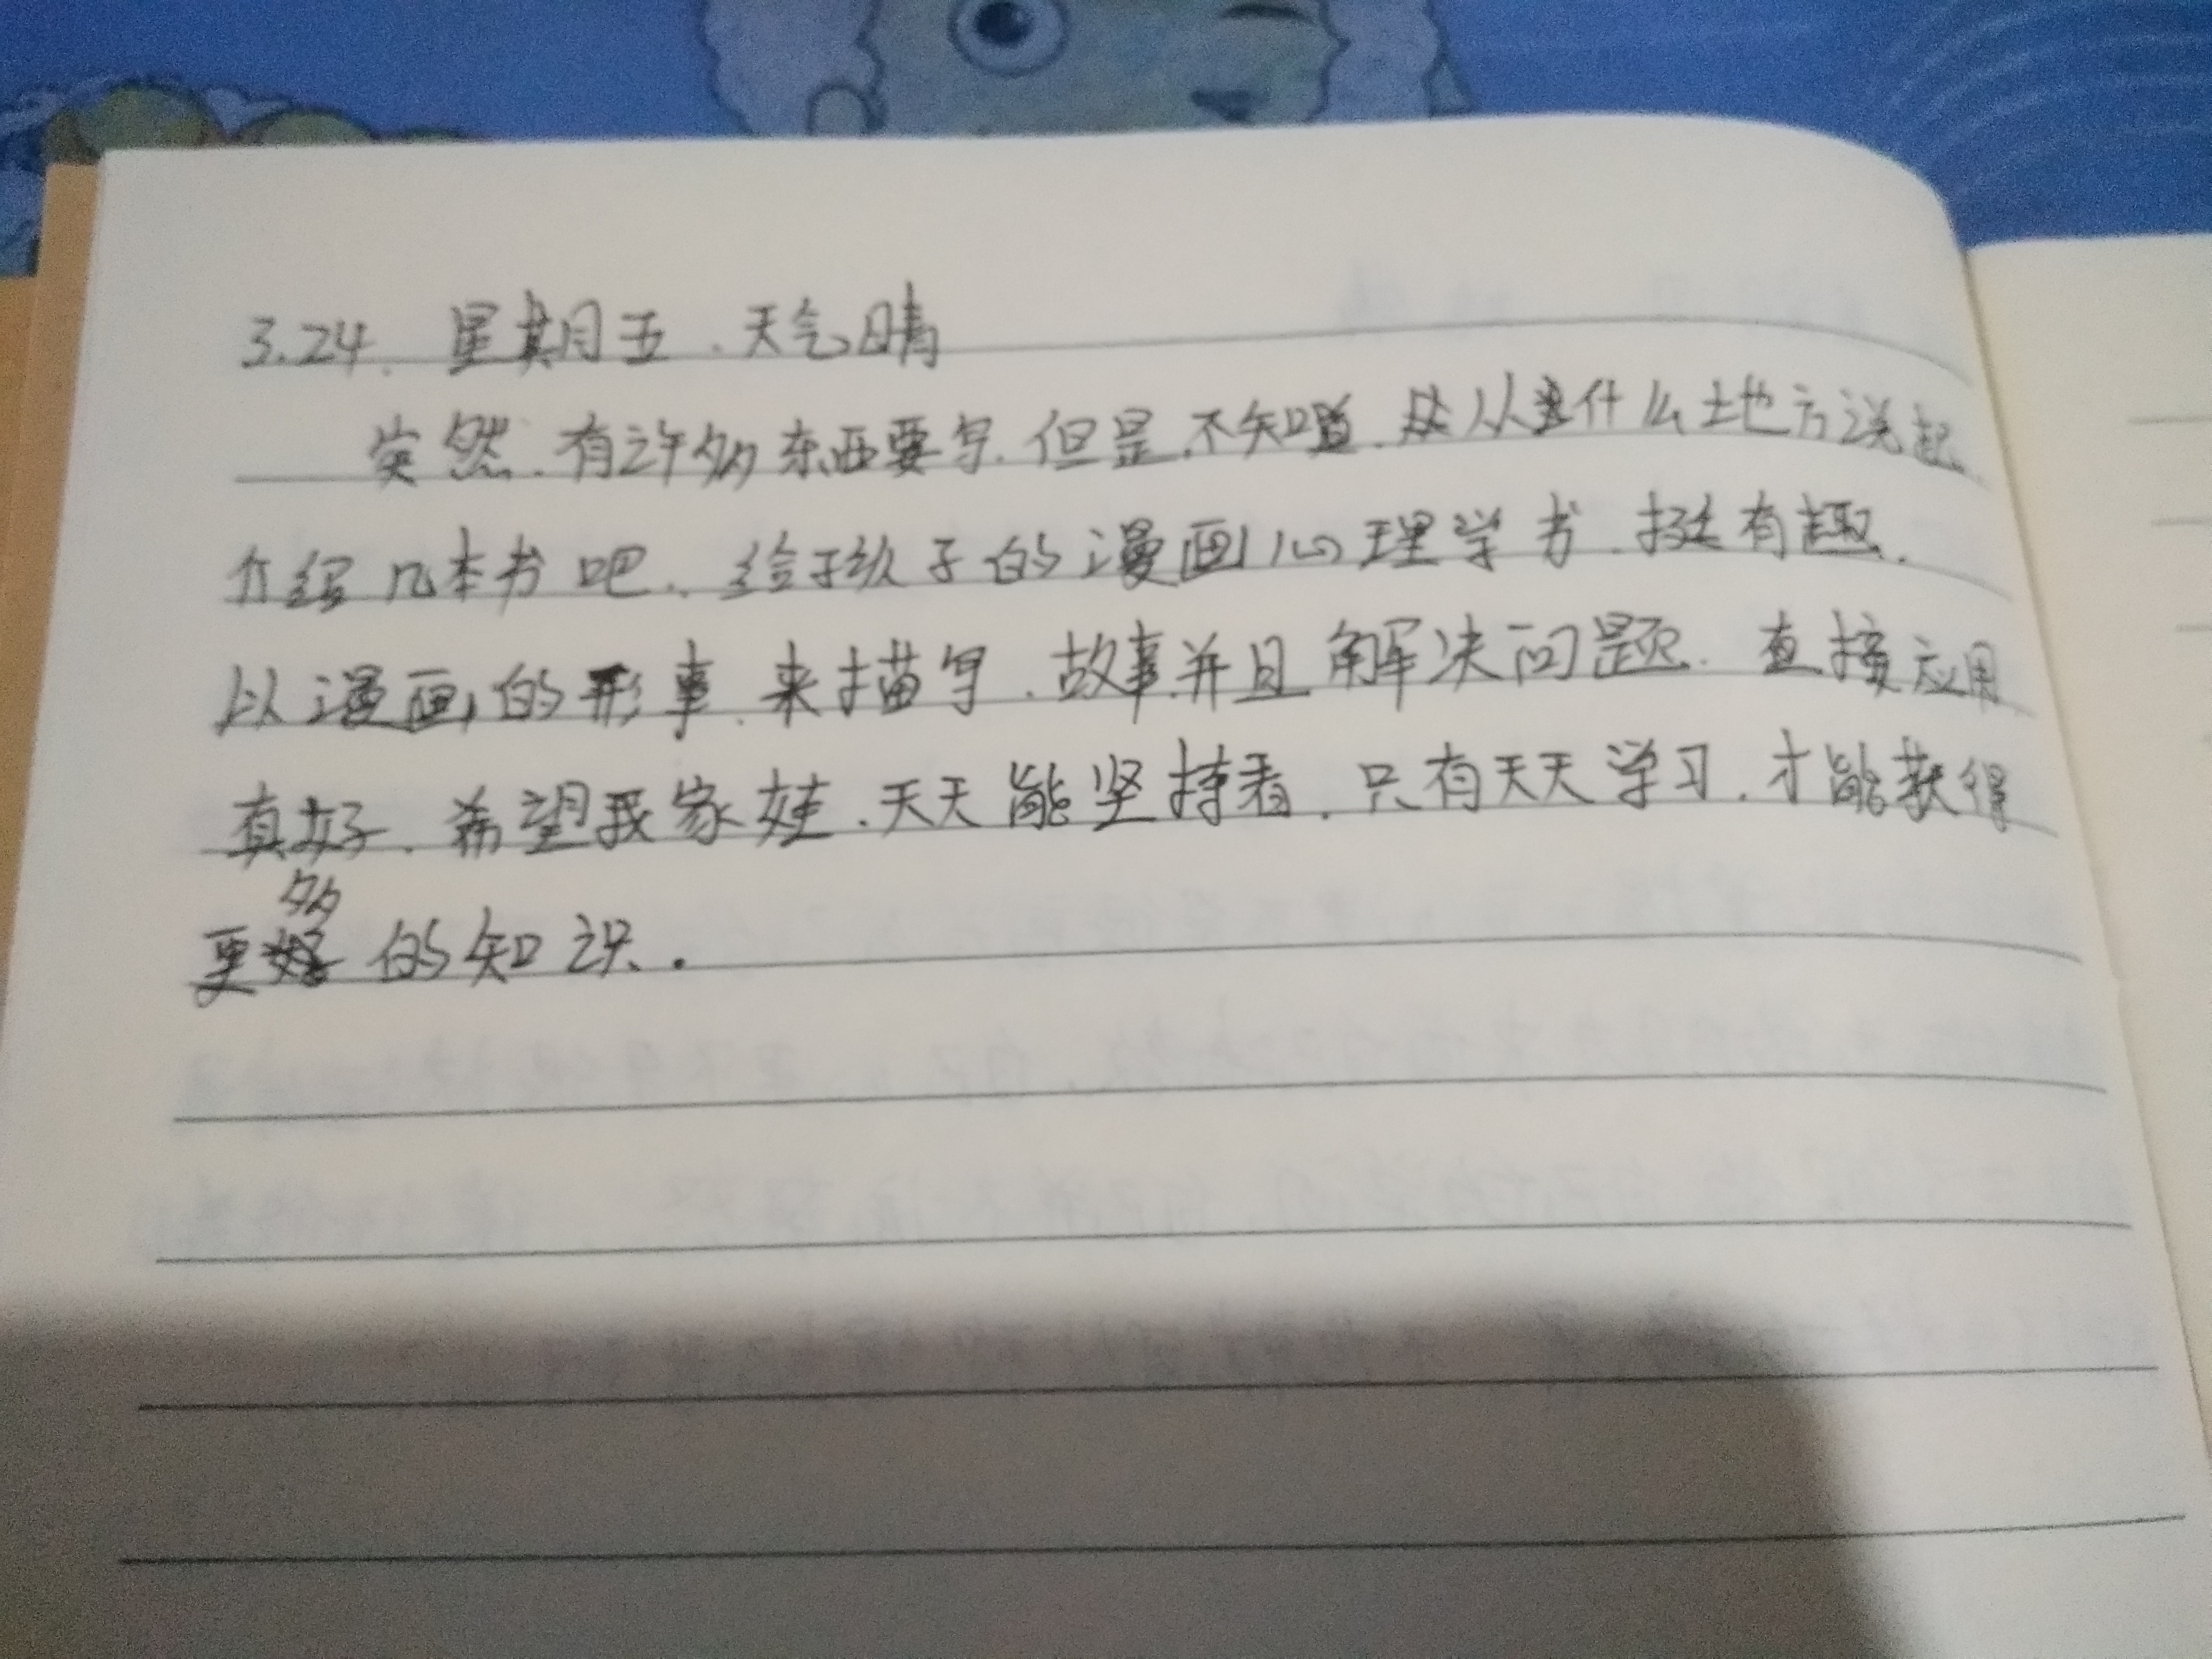 3.24. 星期五.天气晴
突然.有许多东西要写.但是.不知道.从什么地方说起.
介绍几本书吧.给孩子的漫画心理学书.挺有趣.
以漫画的形事.来描写.故事.并且解决问题.直接应用
真好.希望我家娃.天天能坚持看.只有天天学习.才能获得
更多的知识.